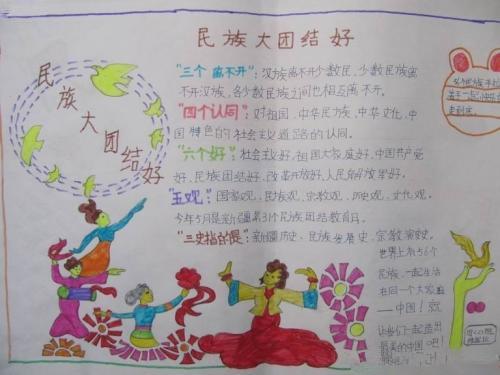 民族大团结好
民族大团结好
"三个离不开":汉族离不开少数民,少数民族离
不开汉族,各少数民族之间也相互离不开。
"四个认同":对祖国、中华民族、中华文化、中
国特色的社会主义道路的认同。
"六个好":社会主义好、祖国大家庭好、中国共产党
好、民族团结好、改革开放好、人民解放军好。
"五观":国家观、民族观、宗教观、历史观、文化观。
今年5月是新疆第31个民族团结教育月。
"三史指的是":新疆历史、民族发展史、宗教演变史。
世界上有56个
民族,一起生活
在同一个大家庭
——中国!就
让我们一起造出
最美的中国吧!